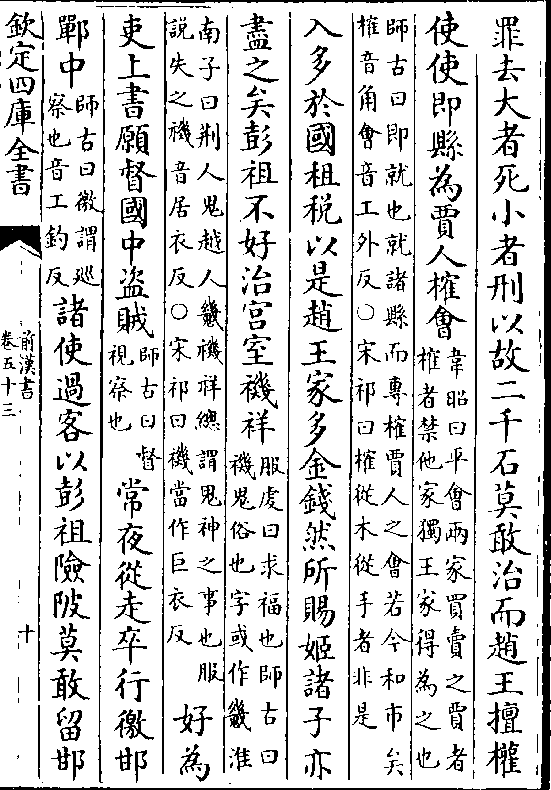 罪去大者死小者刑以故二千石莫敢治而趙王擅權
使使即縣為賈人榷會韋昭曰平會兩家買賣之賈者
榷者禁他家獨王家得為之也
師古曰即就也就諸縣而專榷賈人之會若今和市矣
榷音角會音工外反○宋祁曰榷從木從手者非是
入多於國租税以是趙王家多金錢然所賜姬諸子亦
盡之矣彭祖不好治宫室禨祥服虔曰求福也師古曰
禨鬼俗也字或作𥛆淮
南子曰荆人鬼越人𥛆禨祥總謂鬼神之事也服
説失之禨音居衣反○宋祁曰禨當作巨衣反
好為
吏上書願督國中盜賊師古曰督
視察也
常夜從走卒行徼邯
鄲中師古曰徼謂廵
察也音工釣反
諸使過客以彭祖險陂莫敢留邯
欽定四庫全書
前漢書
卷五十三
十